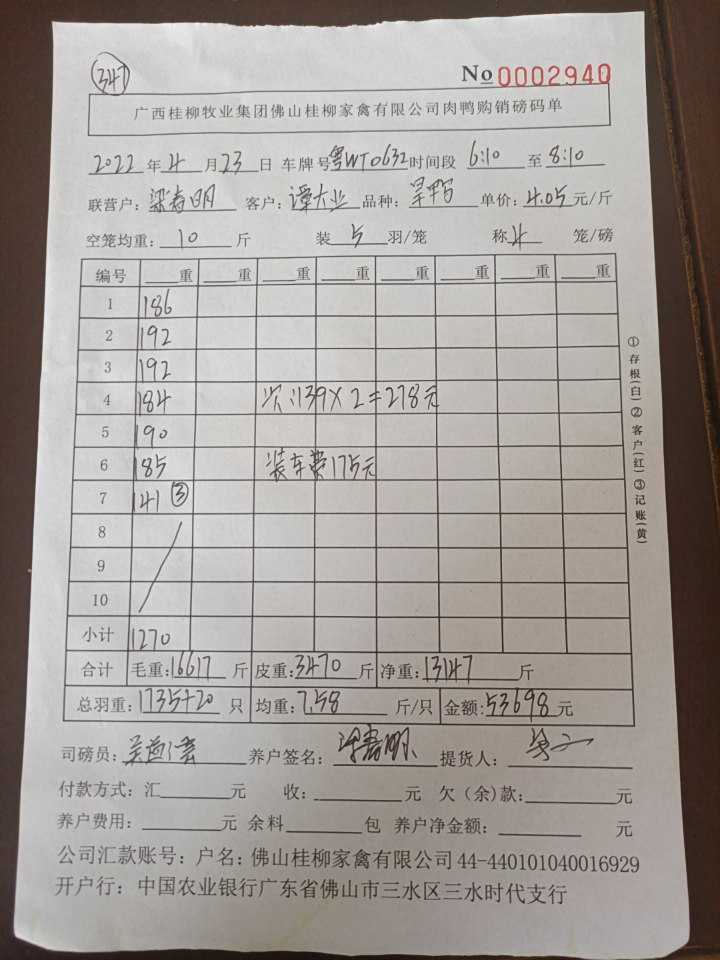 347
No 0002940
广西桂柳牧业集团佛山桂柳家禽有限公司肉鸭购销磅码单
2022年4月23日 车牌号粤WT0632时间段 6:10 至 8:10
联营户:梁寿明 客户:谭大业 品种: 单价:4.05元/斤
空笼均重:10斤 装5羽/笼 称4笼/磅
编号 重 重 重 重 重 重 重 重
1 186
2 192
3 192
4 184 139×2=278元
5 190
6 185 装车费175元
7 141 ③
8
9
10
小计 1270
合计 毛重:16617斤 皮重:3470斤 净重:13147斤
总羽重:1735+20只 均重:7.58斤/只 金额:53698元
司磅员: 养户签名: 提货人:
付款方式:汇 元 收: 元 欠(余)款: 元
养户费用: 元 余料 包 养户净金额: 元
公司汇款账号:户名:佛山桂柳家禽有限公司 44-440101040016929
开户行:中国农业银行广东省佛山市三水区三水时代支行
①存根(白)②客户(红)③记账(黄)